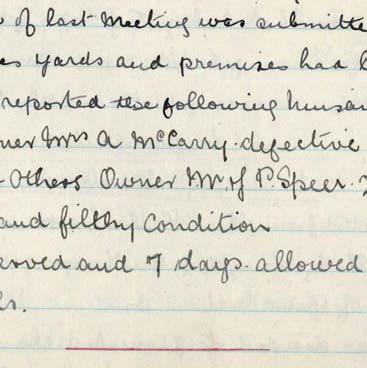 of last Meeting was submitte
es yards and premises had
reported the following nuisan
ner Mrs A McCarry. defective
Others Owner Mr. J P. Speer.
and filthy condition
erved and 7 days. allowed